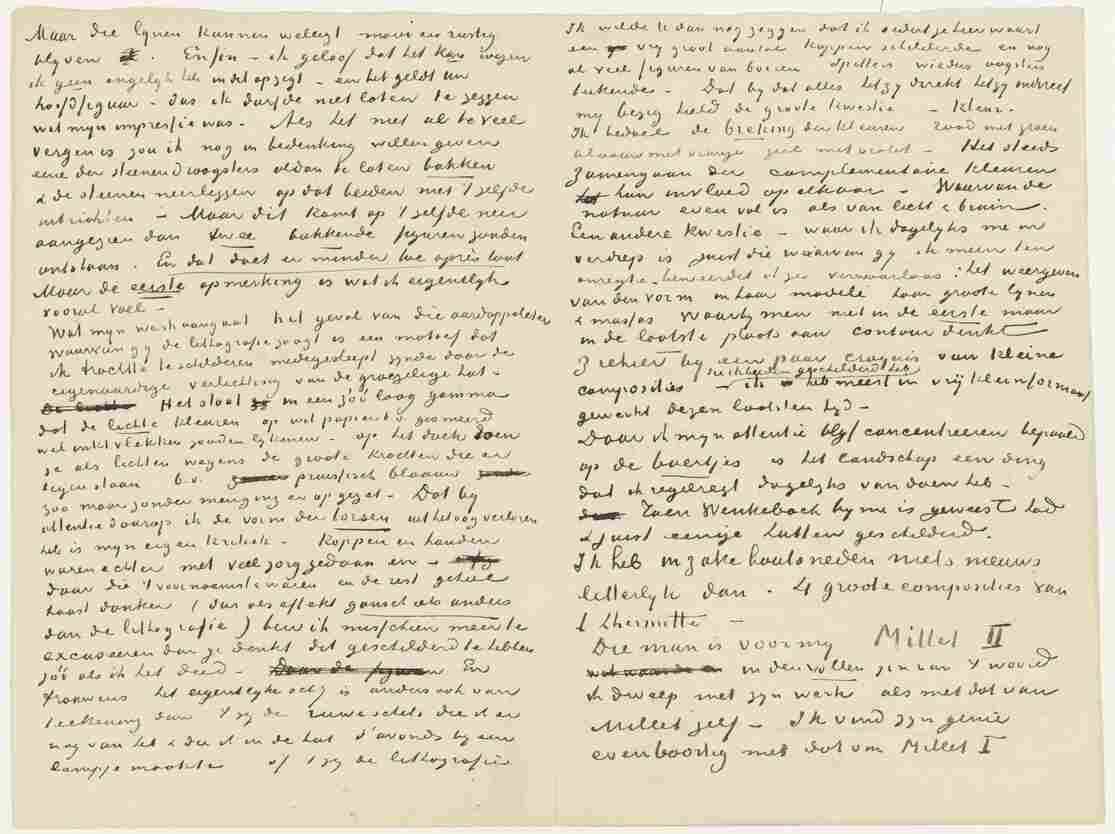 Maar die lynen kunnen wellegt mooi en rustig
blyven . Enfin – ik geloof dat het kan wezen
ik geen ongelyk heb in dit op zigt – en het geldt un
hoofdfiguur – dus ik durfde niet laten te zeggen
wat myn impressie was – Als het niet al te veel
vergen is zou ik nog in bedenking willen geven
eene der steenendraagsters aldan te laten bukken
& de steenen neerleggen op dat beiden niet 't zelfde
uitrichten – Maar dit komt op 't zelfde neer
aangezien dan twee bukkende figuren zouden
ontstaan. En dat doet er minder toe après tout
Maar de eerste opmerking is wat ik eigenlyk
vooral voel –
Wat myn werk aangaat het geval van die aardappeleters
waarvan gy de lithografie zaagt is een motief dat
ik trachtte te schilderen medegesleept zynde door de
eigenaardige verlichting van de groezelige hut –
Het staat in een zóó laag gamma
dat de lichte kleuren op wit papier b.v. gesmeerd
wel inktvlekken zouden lykenen – op het doek doen
ze als lichten wegens de groote krachten die er
tegen staan b.v. pruisisch blaauw
zoo maar zonder menging er op gezet – Dat by
attentie daarop ik de vorm der torsen uit het oog verloren
heb is myn eigen kritiek – Koppen en handen
waren echter met veel zorg gedaan en –
daar die 't voornaamste waren en de rest geheel
haast donker (dus als effekt gansch iets anders
dan de lithografie) ben ik misschien meer te
excuseeren dan ge denkt dit geschilderd te hebben
zóó als ik het deed – En
trouwens het eigentlyke schij is anders ook van
teekening dan 't zy de ruwe schets die ik er
nog van heb & die ik in de hut s'avonds by een
lampje maakte of 't zy de lithografie
Ik wilde U dan nog zeggen dat ik sedert ge hier waart
een vry groot aantal koppen schilderde en nog
al veel figuren van boeren spitters wieders oogsten
teekende – Dat by dat alles hetzy direkt hetzy indirect
my bezig hield de groote kwestie – Kleur.
Ik bedoel de breking der kleuren rood met groen
blaauw met oranje geel met violet – Het steeds
zamengaan der complementaire kleuren
hun invloed op elkaar – Waarvan de
natuur even vol is als van licht & bruin.
Een andere kwestie – waar ik dagelyks me in
verdiep is juist die waarvan gy ik meen ten
onregte beweerdet ik ze verwaarloos: het weergeven
van den vorm in haar modelé haar groote lynen
& massas waarbymen niet in de eerste maar
in de laatste plaats aan contour denkt
Zichier by een paar croquis van kleine
studies geschilderd heb
composities – ik heb meest in vrij klein formaat
gewerkt dezen laatsten tyd –
Daar ik myn attentie blyf concentreeren bepaald
op de boertjes is het landschap een ding
dat ik regelregt dagelyks van doen heb –
Toen Wenkebach by me is geweest had
& juist eenige hutten geschilderd.
Ik heb inzake houtsneden niets nieuws
letterlyk dan . 4 groote composities van
L Lhermitte –
Die man is voor my Millet II
in den vollen zin van 't woord
ik dweep met zyn werk als met dat van
Millet zelf – Ik vind zyn genie
evenboortig met dat van Millet I